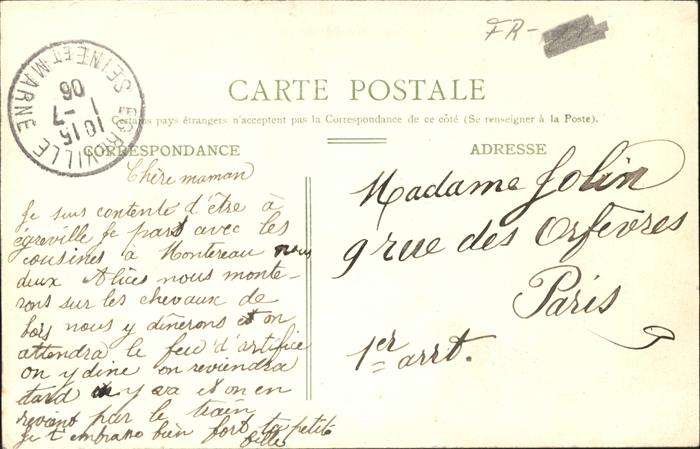 FR-
CARTE POSTALE
Certains pays étrangers n'acceptent pas la Correspondance de ce côté (Se renseigner à la Poste).
CORRESPONDANCE
ADRESSE
EGREVILLE
SEINE ET MARNE
1015
1-7
06
Chère maman
Je suis contente d'être à
égreville je pars avec les
cousines à Montereau nous
deux Alices nous monte-
rons sur les chevaux de
bois nous y dînerons et on
attendra le feu d'artifice
on y dine on reviendra
tard on y va et on en
revient par le train
Je t'embrasse bien fort ta petite
fille
Madame Jolin
9 rue des Orfèvres
Paris
1er arrt.